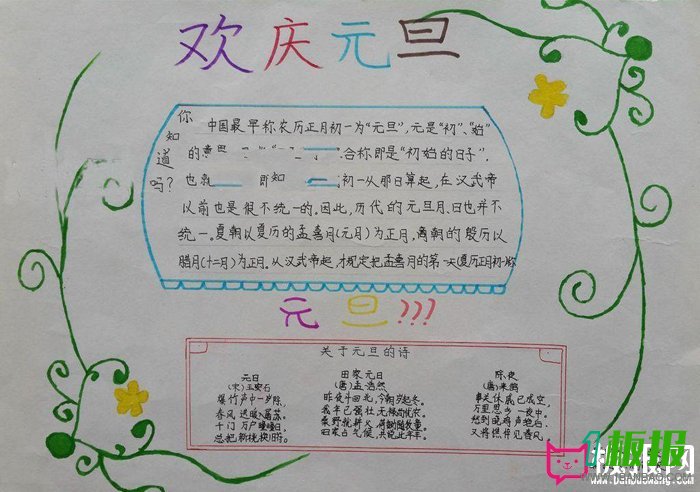 欢庆元旦
你知道吗?
中国最早称农历正月初一为“元旦”,元是“初”、“始”
的意思 合称即是“初始的日子”.
也就 即如 初一从那日算起,在汉武帝
以前也是很不统一的。因此,历代的元旦月、日也并不
统一。夏朝以夏历的孟喜月(元月)为正月,商朝的殷历以
腊月(十二月)为正月。从汉武帝起,才规定把孟喜月的第一天(夏历正月初一)称
元旦???
关于元旦的诗
元日
(宋)王安石
爆竹声中一岁除,
春风送暖入屠苏。
千门万户曈曈日,
总把新桃换旧符。
田家元日
(唐)孟浩然
昨夜斗回北,今朝岁起东。
我年已强壮,无禄尚忧农。
桑野就耕父,荷锄随牧童。
田家占气候,共说此年丰。
除夜
(唐)来鹄
事关休戚已成空,
万里思乡一夜中。
愁到晓鸡声绝后,
又将憔悴见春风。
板报
板报网